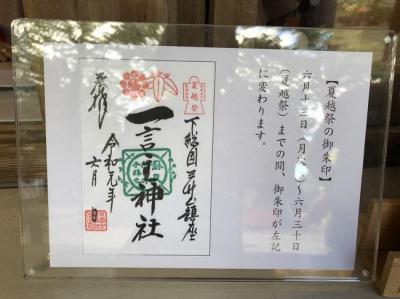 【夏越祭の御朱印】
六月十三日(月次祭)~六月三十日
(夏越祭)までの間、御朱印が左記
に変わります。
夏越祭
下総国三竹山鎮座
一言主神社
奉拝
令和元年
六月 日